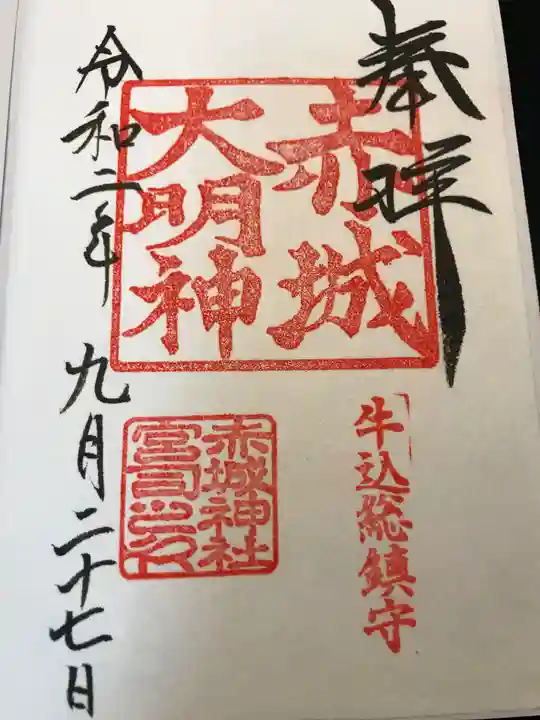 奉拝
赤城
大明神
牛込総鎮守
赤城神社
宮司之印
令和二年 九月二十七日